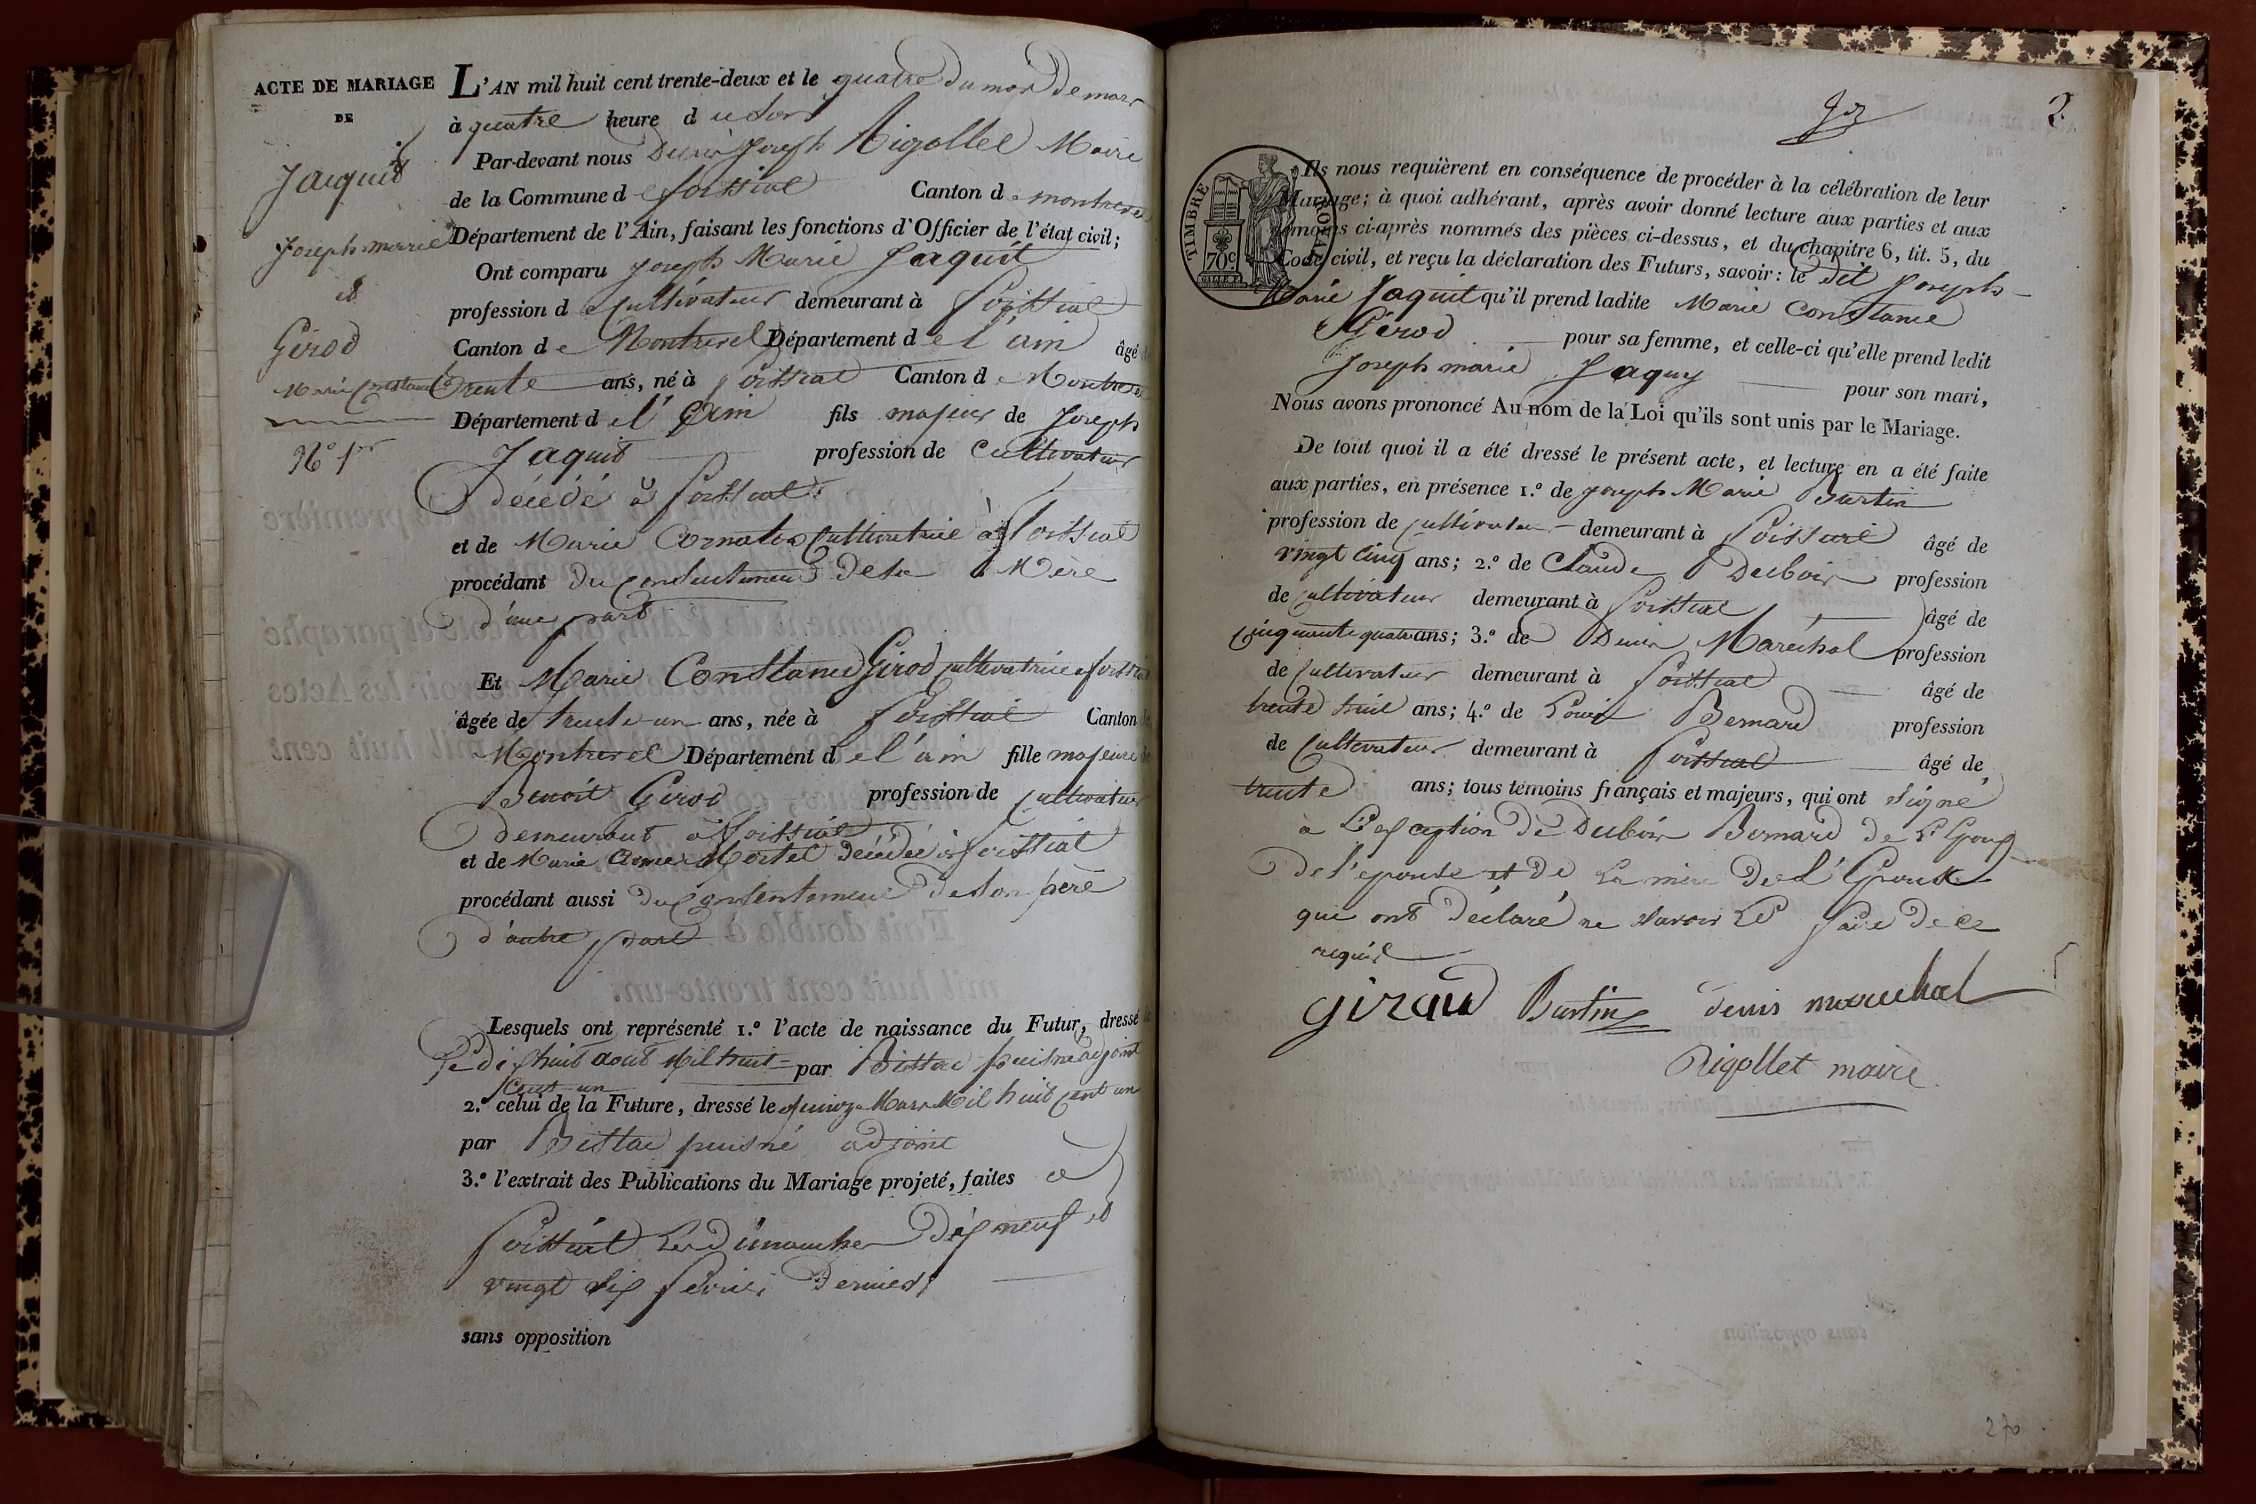 ACTE DE MARIAGE
DE
Jaquit
Joseph marie
et
Girod
Marie Constance
N° 1er
L'AN mil huit cent trente-deux et le quatre du mois De mars
à quatre heure d u Soir
Par-devant nous Denis Joseph Rigollet Maire
de la Commune d e foissiat Canton d e montrevel
Département de l'Ain, faisant les fonctions d'Officier de l'état civil;
Ont comparu Joseph Marie Jaquit
profession d e Cultivateur demeurant à foissiat
Canton d e Montrevel Département d e l'ain âgé de
trente ans, né à foissiat Canton d e Montrevel
Département d e l'ain fils majeur de Joseph
Jaquit profession de Cultivateur
Décédé à foissiat
et de Marie Cornaton Cultivatrice à foissiat
procédant du Consentement de sa Mère
d'une part
Et Marie Constance Girod cultivatrice a foissiat
âgée de trente un ans, née à foissiat Canton de
Montrevel Département d e l'ain fille majeure de
Benoit Girod profession de Cultivateur
demeurant à foissiat
et de Marie Mortel Décédée à foissiat
procédant aussi du Consentement de son père
d'autre part
Lesquels ont représenté 1.º l'acte de naissance du Futur, dressé
le dix huit aout Mil huit par puisné adjoint
Cent un
2.º celui de la Future, dressé le quinze Mars Mil huit Cent un
par puisné adjoint
3.º l'extrait des Publications du Mariage projeté, faites a
foissiat Les dimanches Dix neuf et
vingt six fevrier Dernier
sans opposition
2
TIMBRE ROYAL
70 c
Ils nous requièrent en conséquence de procéder à la célébration de leur
Mariage; à quoi adhérant, après avoir donné lecture aux parties et aux
témoins ci-après nommés des pièces ci-dessus, et du chapitre 6, tit. 5, du
Code civil, et reçu la déclaration des Futurs, savoir: le dit Joseph
Marie Jaquit qu'il prend ladite Marie Constance
Girod pour sa femme, et celle-ci qu'elle prend ledit
Joseph marie Jaquy pour son mari,
Nous avons prononcé Au nom de la Loi qu'ils sont unis par le Mariage.
De tout quoi il a été dressé le présent acte, et lecture en a été faite
aux parties, en présence 1.º de Joseph Marie Burtin
profession de Cultivateur demeurant à foissiat âgé de
vingt cinq ans; 2.º de Claude Dubois profession
de Cultivateur demeurant à foissiat âgé de
Cinquante quatre ans; 3.º de Denis Maréchal profession
de Cultivateur demeurant à foissiat âgé de
trente huit ans; 4.º de Louis Bernard profession
de Cultivateur demeurant à foissiat âgé de
trente ans; tous témoins français et majeurs, qui ont signé
à L'exception de Dubois Bernard de L'Epoux
de l'epouse et de La mère de L'Epoux
qui ont déclaré ne savoir Le faire de ce
requis
giraud Burtin denis marechal
Rigollet maire
270